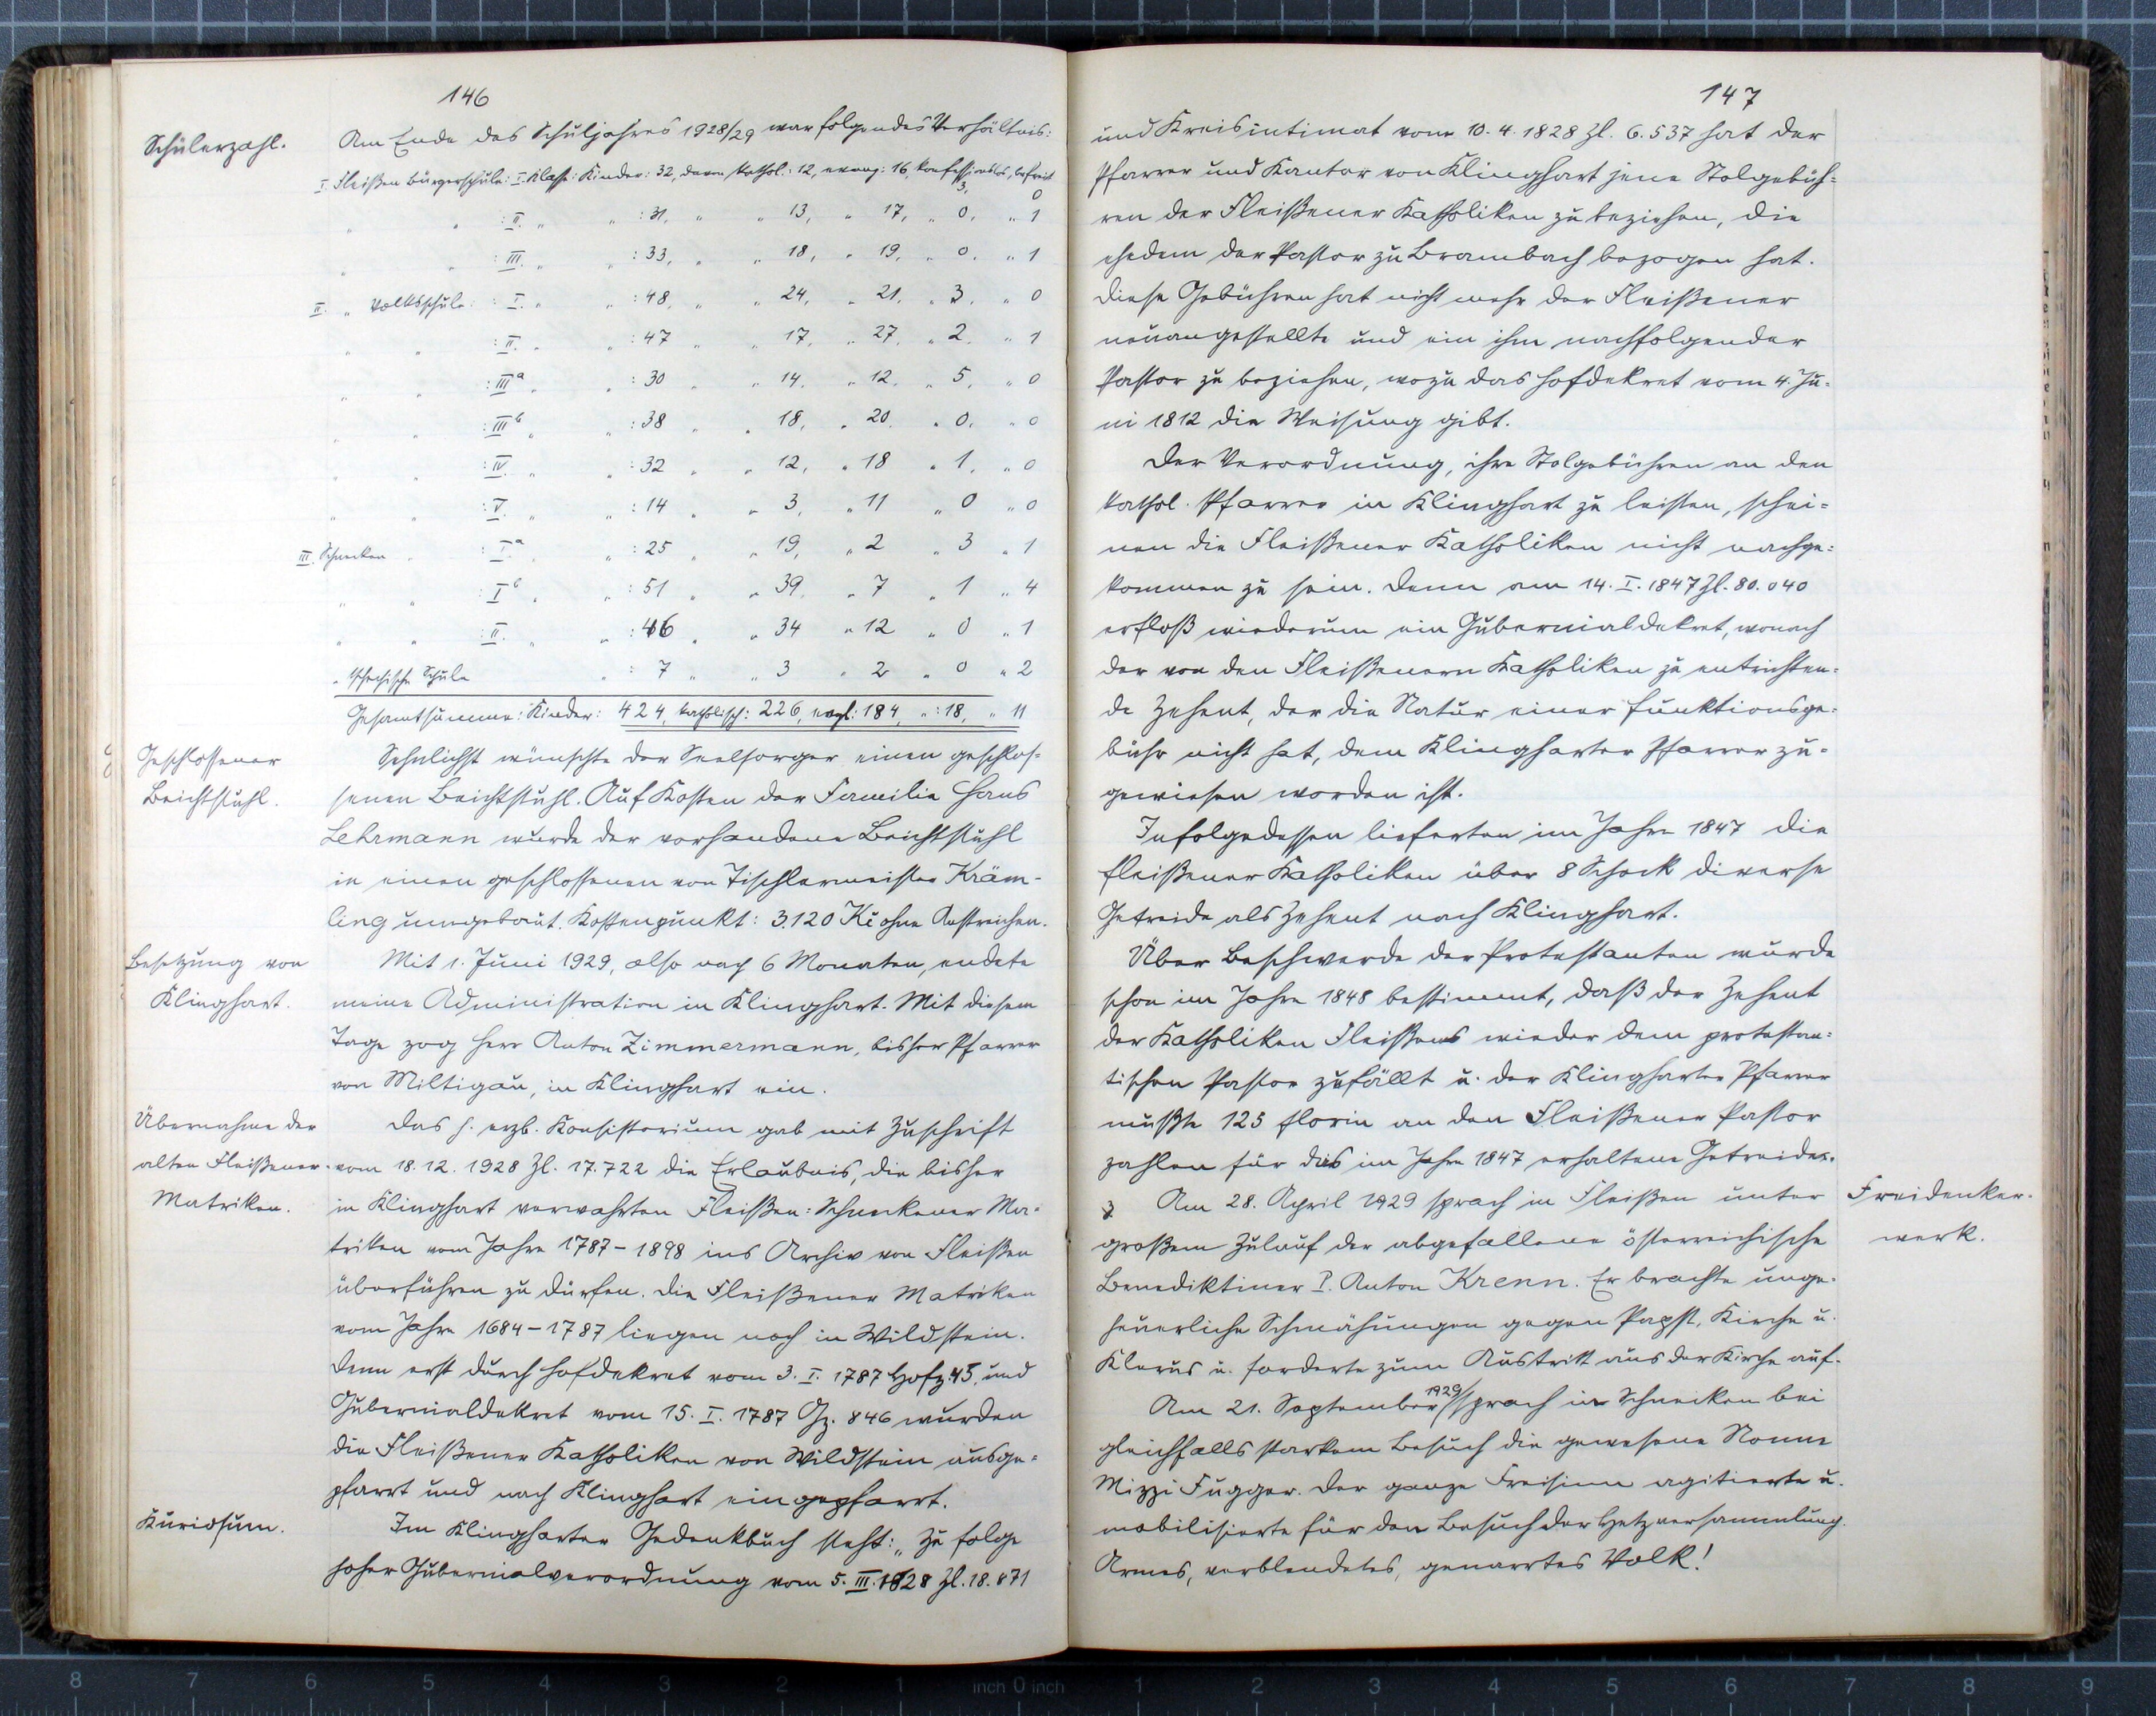 146
Schülerzahl.
Am Ende des Schuljahres 1928/29 war folgendes Verhältnis:
I. Fleißen Bürgerschule: I. Klasse: Kinder: 32, davon kathol.: 12, evang: 16, konfessionslos, befreit
3, 0
" " : II. " " : 31, " " 13, " 17, " 0, " 1
" " : III. " " : 33, " " 18, " 19, " 0, " 1
II. " Volksschule: : I. " " : 48, " " 24, " 21, " 3, " 0
" " : II. " " : 47 " " 17, " 27, " 2, " 1
" " : IIIa " " : 30 " " 14, " 12, " 5, " 0
" " : IIIb " " : 38 " " 18, " 20, " 0, " 0
" " : IV. " " : 32 " " 12, " 18 " 1, " 0
" " : V. " " : 14 " " 3, " 11 " 0 " 0
III. Schnecken " : Ia " " : 25 " " 19, " 2 " 3 " 1
" " : Ib " " : 51 " " 39, " 7 " 1 " 4
" " : II. " " : 46 " " 34 " 12 " 0 " 1
" tschechische Schule " : 7 " " 3 " 2 " 0 " 2
Gesamtsumme: Kinder: 424, katholisch: 226, evgl: 184, " : 18, " 11
Geschlossener
Beichtstuhl.
Sehnlichst wünschte der Seelsorger einen geschlos-
senen Beichtstuhl. Auf Kosten der Familie Hans
Lehrmann wurde der vorhandene Beichtstuhl
in einen geschlossenen von Tischlermeister Kräm-
ling umgebaut. Kostenpunkt: 3.120 Kč ohne Anstreichen.
Besetzung von
Klinghart.
Mit 1. Juni 1929, also nach 6 Monaten, endete
meine Administration in Klinghart. Mit diesem
Tage zog Herr Anton Zimmermann, bisher Pfarrer
von Miltigau, in Klinghart ein.
Übernahme der
alten Fleißener
Matriken.
Das h. erzb. Konsistorium gab mit Zuschrift
vom 18.12.1928 Zl. 17.722 die Erlaubnis, die bisher
in Klinghart verwahrten Fleißen=Schneckener Ma-
triken vom Jahre 1787-1898 ins Archiv von Fleißen
überführen zu dürfen. Die Fleißener Matriken
vom Jahre 1684-1787 liegen noch in Wildstein.
Denn erst durch Hofdekret vom 3. I. 1787 Hofz. 45, und
Gubernialdekret vom 15. I. 1787 Gz. 846 wurden
die Fleißener Katholiken von Wildstein ausge-
pfarrt und nach Klinghart eingepfarrt.
Kuriosum.
Im Klingharter Gedenkbuch steht: „Zu folge
hoher Gubernialverordnung vom 5. III. 1828 Zl. 18.871
147
und Kreisintimat vom 10.4.1828 Zl. 6.537 hat der
Pfarrer und Kantor von Klinghart jene Stolgebüh-
ren der Fleißener Katholiken zu beziehen, die
ehedem der Pastor zu Brambach bezogen hat.
Diese Gebühren hat nicht mehr der Fleißener
neuangestellte und ein ihm nachfolgender
Pastor zu beziehen, wozu das Hofdekret vom 4. Ju-
ni 1812 die Weisung gibt.
Der Verordnung, ihre Stolgebühren an den
kathol. Pfarrer in Klinghart zu leisten, schei-
nen die Fleißener Katholiken nicht nachge-
kommen zu sein. Denn am 14. I. 1847 Zl. 80.040
erfloß wiederum ein Gubernialdekret, wonach
der von den Fleißenern Katholiken zu entrichten-
de Zehent, der die Natur einer Funktionsge-
bühr nicht hat, dem Klingharter Pfarrer zu-
gewiesen worden ist.
Infolgedessen lieferten im Jahre 1847 die
Fleißener Katholiken über 8 Schock diverse
Getreide als Zehent nach Klinghart.
Über Beschwerde der Protestanten wurde
schon im Jahre 1848 bestimmt, daß der Zehent
der Katholiken Fleißens wieder dem protestan-
tischen Pastor zufällt u. der Klingharter Pfarrer
mußte 125 florin an den Fleißener Pastor
zahlen für das im Jahre 1847 erhaltene Getreide.
Freidenker-
werk.
Am 28. April 1929 sprach in Fleißen unter
großem Zulauf der abgefallene österreichische
Benediktiner P. Anton Krenn. Er brachte unge-
heuerliche Schmähungen gegen Papst, Kirche u.
Klerus u. forderte zum Austritt aus der Kirche auf.
Am 21. September 1929 sprach in Schnecken bei
gleichfalls starkem Besuch die gewesene Nonne
Mizzi Fugger. Der ganze Freisinn agitierte u.
mobilisierte für den Besuch der Hetzversammlung.
Armes, verblendetes, genarrtes Volk!
8 7 6 5 4 3 2 1 inch 0 inch 1 2 3 4 5 6 7 8 9